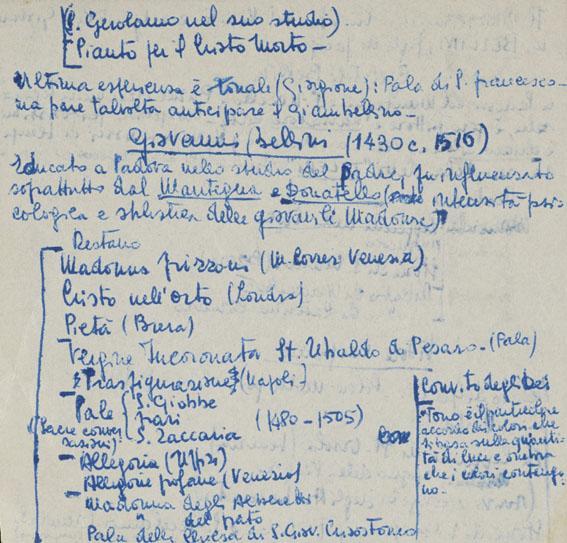 S. Gerolamo nel suo studio)
Pianto per il Cristo Morto -
Ultima esperienza è - tonali (Giorgione): Pala di S. Francesco -
ma pare talvolta anticipare il Giambellino -
Giovanni Bellini (1430 c. 1516)
Educato a Padova nello studio del Padre, fu influenzato
soprattutto dal Mantegna e Donatello ( intensità psi-
cologica e stilistica delle giovanili Madonne)
Restano
Madonna Frizzoni (M. Correr Venezia)
Cristo nell'Orto (Londra)
Pietà (Brera)
Vergine Incoronata St. Ubaldo di Pesaro - (Pala)
Trasfigurazione (Napoli)
- Pale { S. Giobbe
Frari
S. Zaccaria
(1480 - 1505)
(Sacre conver
sazioni)
- Allegoria (Uffizi)
- Allegorie profane (Venezia)
- Madonna degli Alberetti
del prato
Pala della Chiesa di S. Giov. Crisostomo
Convito degli Dei
- Tono è il particolare
accordo di colori che
si basa sulla quanti-
tà di luce e ombra
che i colori contengo-
no -